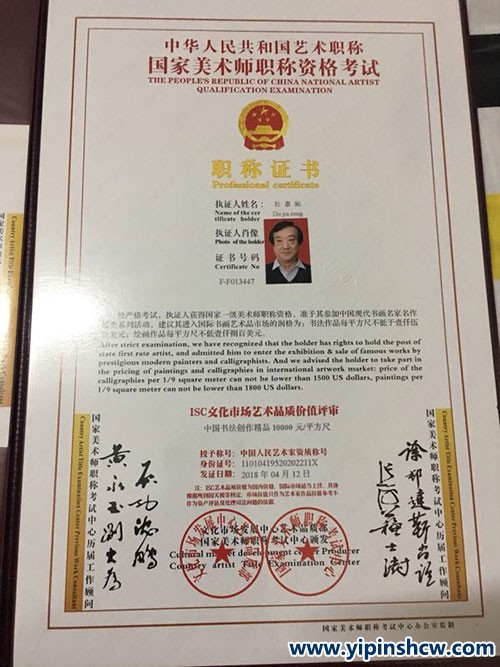 中华人民共和国艺术职称
国家美术师职称资格考试
THE PEOPLE'S REPUBLIC OF CHINA NATIONAL ARTIST
QUALIFICATION EXAMINATION
职称证书
Professional certificate
执证人姓名：
Name of the cer
tificate holder
执证人肖像
Photo of the holder
证书号码
Certificate No
F-F013447
经严格考试，执证人获得国家一级美术师职称资格，准予其参加中国现代书画名家名作
系列活动，建议其进入国际书画艺术品市场的润格为：书法作品每平方尺不低于壹仟伍
佰美元；绘画作品每平方尺不低壹仟捌百美元。
After strict examination, we have recognized that the holder has rights to hold the post of
state first rate artist, and admitted him to enter the exhibition & sale of famous works by
prestigious modern painters and calligraphists. And we advised the holder to take part in
the pricing of paintings and calligraphies in international artwork market: price of the
calligraphies per 1/9 square meter can not be lower than 1500 US dollars, paintings per
1/9 square meter can not be lower than 1800 US dollars.
ISC文化市场艺术品质价值评审
中国书法创作精品 10000 元/平方尺
授予称号：中国人民艺术家资质称号
身份证号：11010419520202211X
发证时间：2018 年 04 月 12 日
国家美术师职称考试中心历届工作顾问
Country Artist Title Examination Center Previous Work Consultant
Country Artist Title Examination Center Previous Work Consultant
国家美术师职称考试中心历届工作顾问
文化市场发展中心艺术品
国家美术师职称考试中心颁发
Cultural market development center Producer
Country artist Title Examination Center
国家美术师职称考试中心办公室监制
www.yipinshcw.com